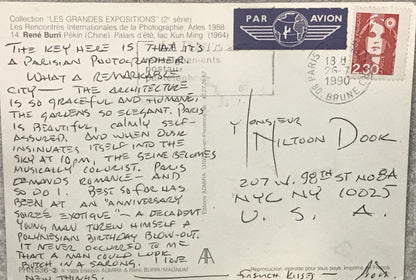 Collection "LES GRANDES EXPOSITIONS" (2e série)
Les Rencontres Internationales de la Photographie. Arles 1988
14 René Burri Pékin (Chine). Palais d'été, lac Kun Ming (1964)
THE KEY HERE IS THAT IT'S
A PARISIAN PHOTOGRAPHER.
WHAT A REMARKABLE
CITY — THE ARCHITECTURE
IS SO GRACEFUL AND HUMANE,
THE GARDENS SO ELEGANT. PARIS
IS BEAUTIFUL, CALMLY SELF-
ASSURED. AND WHEN DUSK
INSINUATES ITSELF INTO THE
SKY AT 10PM, THE SEINE BECOMES
MUSICALLY COLORIST. PARIS
DEMANDS ROMANCE — AND
SO DO I. BEST SO FAR HAS
BEEN AT AN "ANNIVERSARY
SOIRÉE EXOTIQUE" — A DECADENT
YOUNG MAN THREW HIMSELF A
POLYNESIAN BIRTHDAY BLOW-OUT.
IT NEVER OCCURRED TO ME
THAT A MAN COULD LOOK
BUTCH IN A SARONG. I LOVE
NEW THINGS.
FRENCH KISSES —
PAR AVION
PARIS
18 H
26-7
1990
2,30
MONSIEUR
MILTOON DOOK
207 W. 98TH ST NO 8A
NYC NY 10025
U. S. A.
Éditions ADMIRA
© 1989 Éditions ADMIRA & René BURRI/MAGNUM
Reproduction interdite pour tous pays